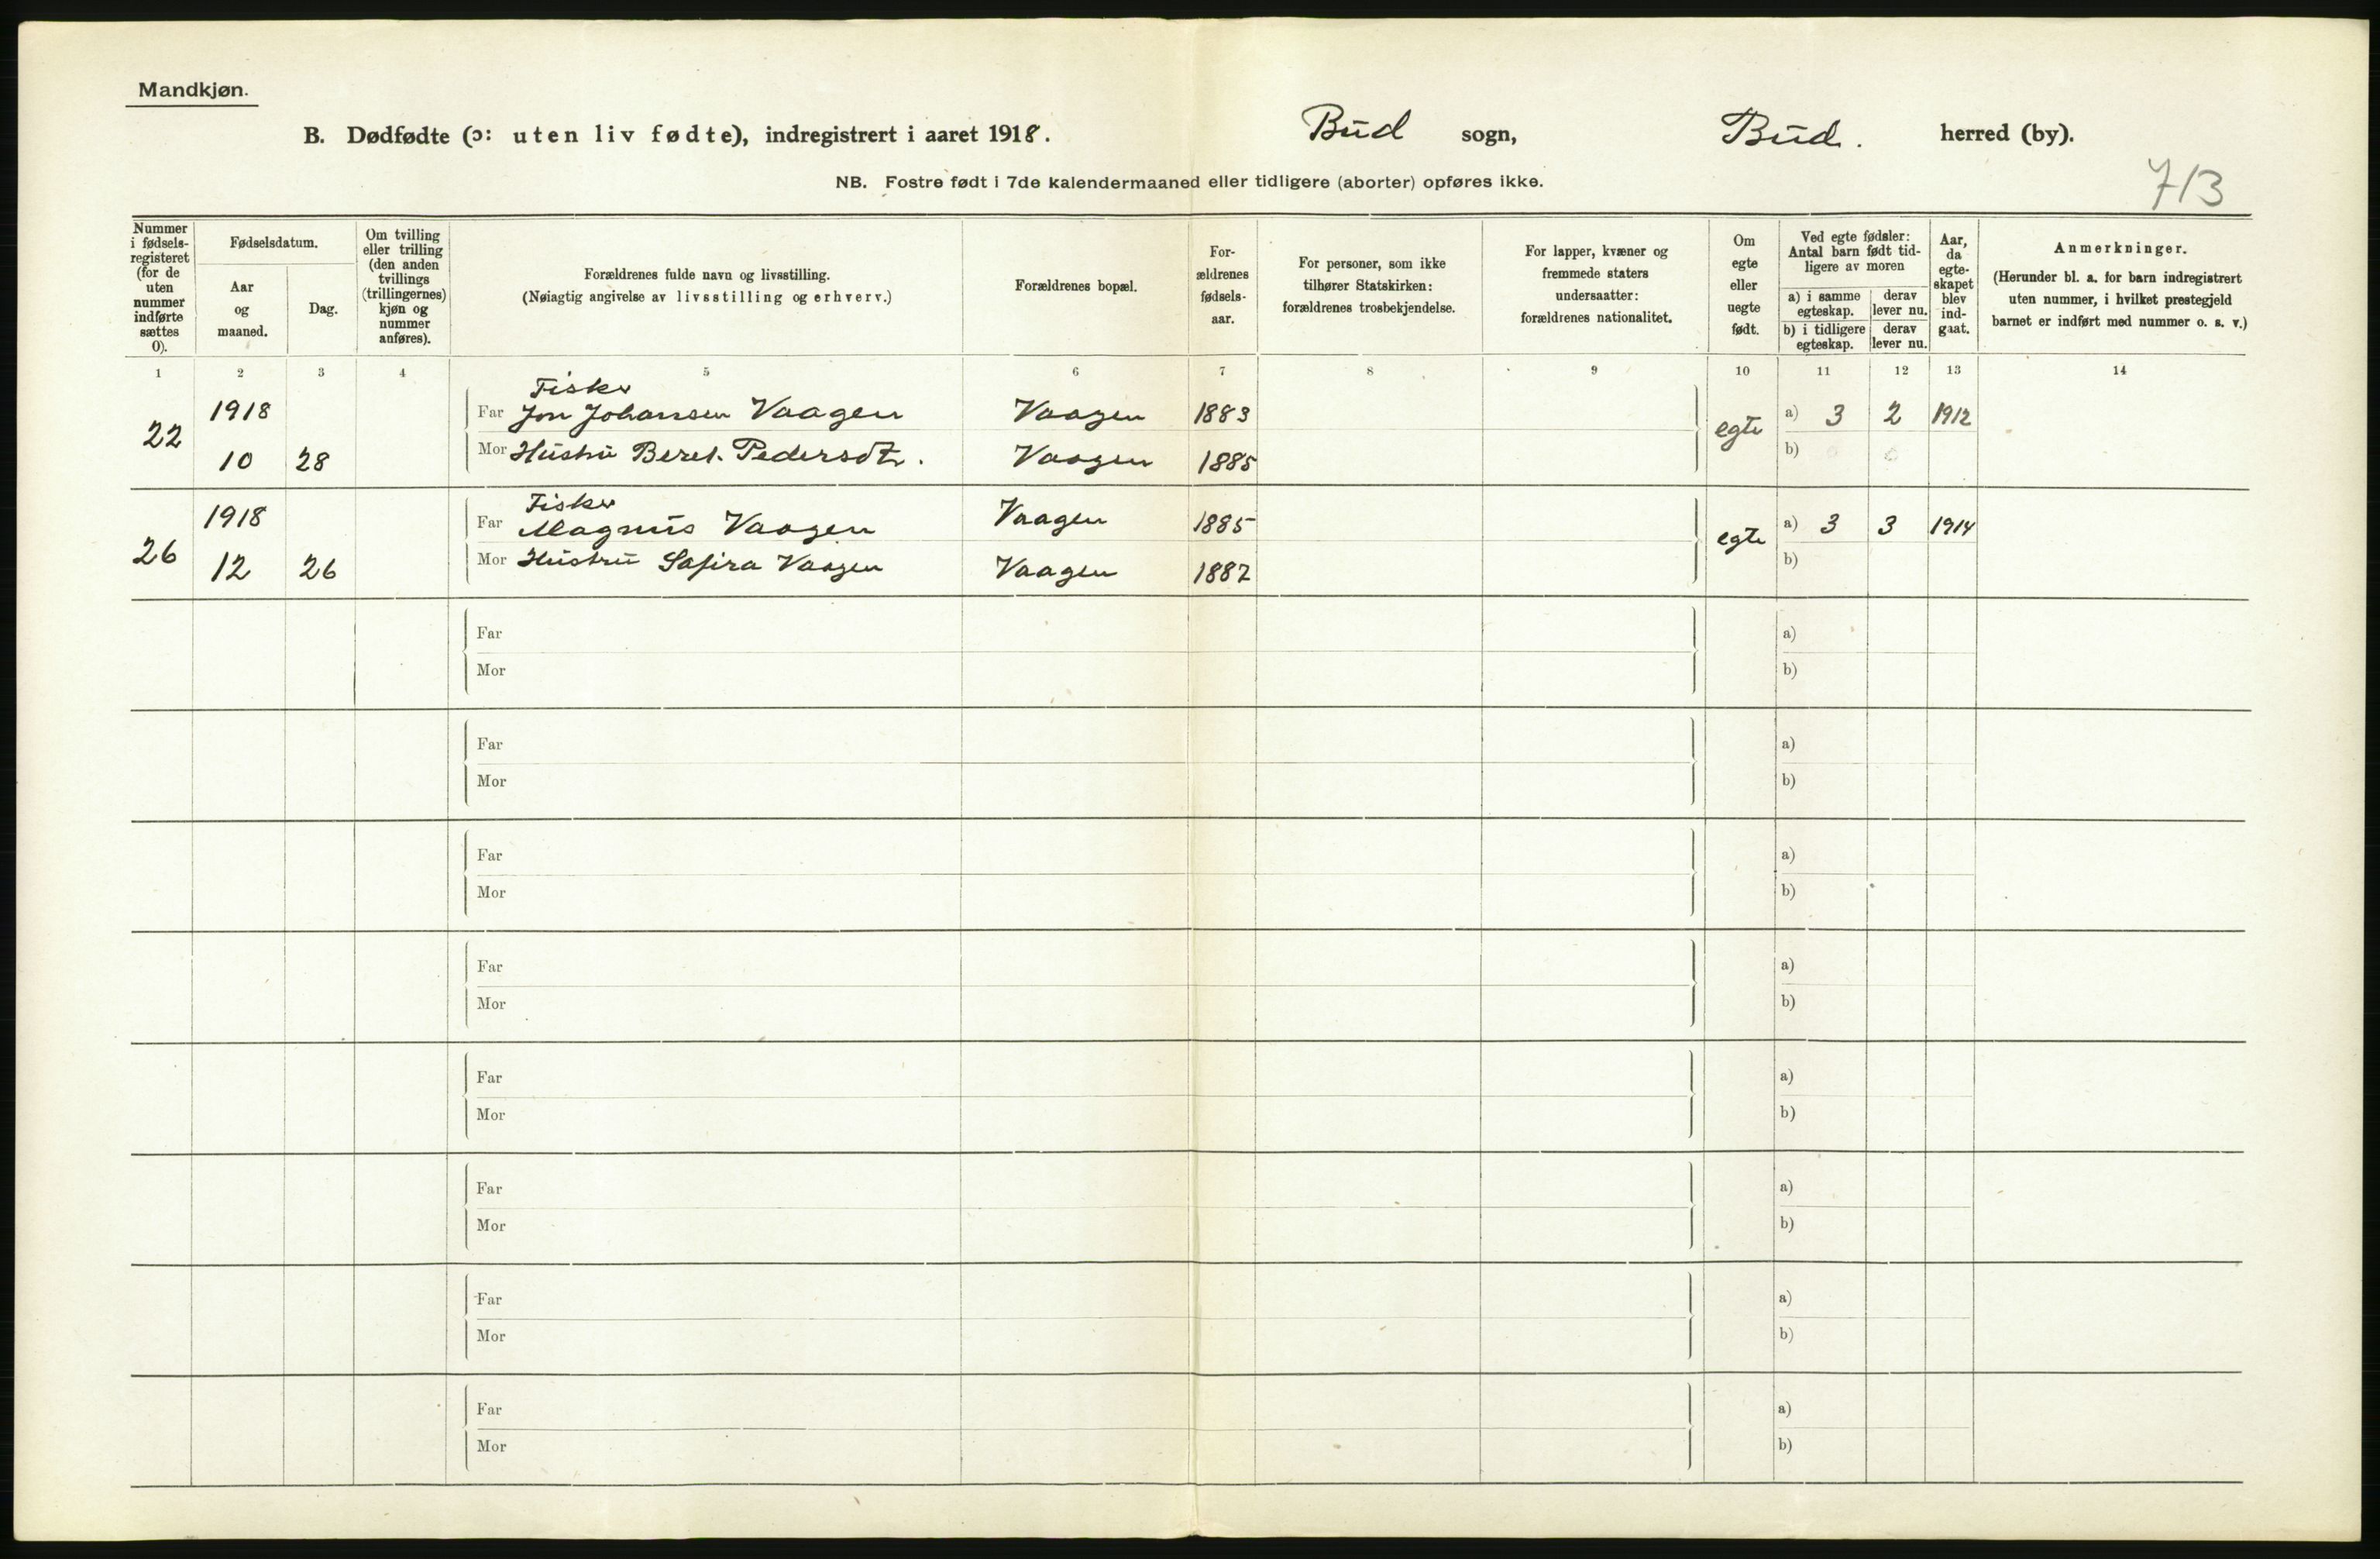 Mandkjøn.
B. Dødfødte (ɔ: uten liv fødte), indregistrert i aaret 1918. Bud sogn, Bud. herred (by).
NB. Fostre født i 7de kalendermaaned eller tidligere (aborter) opføres ikke.
713
Nummer i fødsels-registeret (for de uten nummer indførte sættes 0).
Fødselsdatum.
Aar og maaned.
Dag.
Om tvilling eller trilling (den anden tvillings (trillingernes) kjøn og nummer anføres).
Forældrenes fulde navn og livsstilling.
(Nøiagtig angivelse av livsstilling og erhverv.)
Forældrenes bopæl.
For-ældrenes fødsels-aar.
For personer, som ikke tilhører Statskirken: forældrenes trosbekjendelse.
For lapper, kvæner og fremmede staters undersaatter: forældrenes nationalitet.
Om egte eller uegte født.
Ved egte fødsler: Antal barn født tid-ligere av moren
a) i samme egteskap.
derav lever nu.
b) i tidligere egteskap.
derav lever nu.
Aar, da egte-skapet blev ind-gaat.
Anmerkninger.
(Herunder bl. a. for barn indregistrert uten nummer, i hvilket prestegjeld barnet er indført med nummer o. s. v.)
1 2 3 4 5 6 7 8 9 10 11 12 13 14
Fisker
22 1918 Far Jon Johansen Vaagen Vaagen 1883 egte a) 3 2 1912
10 28 Mor Hustru Beret Pedersdt. Vaagen 1885 b)
Fisker
26 1918 Far Magnus Vaagen Vaagen 1885 egte a) 3 3 1914
12 26 Mor Hustru Safira Vaagen Vaagen 1887 b)
Far a)
Mor b)
Far a)
Mor b)
Far a)
Mor b)
Far a)
Mor b)
Far a)
Mor b)
Far a)
Mor b)
Far a)
Mor b)
Far a)
Mor b)